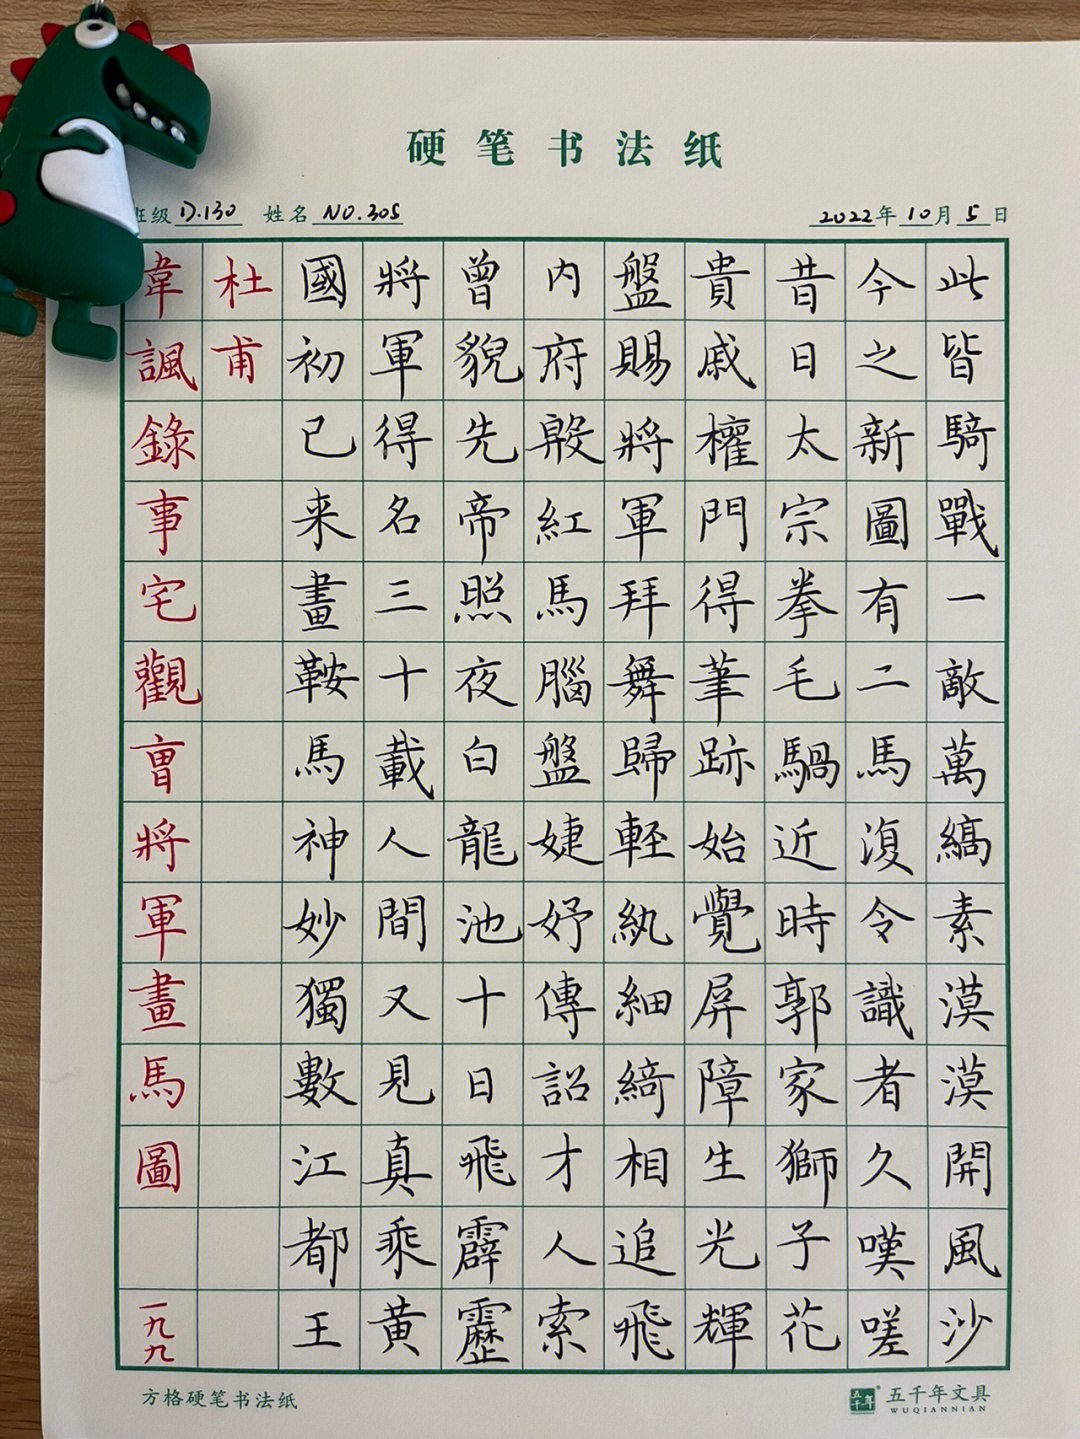 硬笔书法纸
班级 D.130 姓名 NO.305 2022年10月5日
韋諷錄事宅觀曹將軍畫馬圖 一九九
杜甫
國初已来畫鞍馬神妙獨數江都王
將軍得名三十載人間又見真乘黄
曾貌先帝照夜白龍池十日飛霹靂
内府殷紅馬腦盤婕妤傳詔才人索
盤賜將軍拜舞歸輕紈細綺相追飛
貴戚權門得筆跡始覺屏障生光輝
昔日太宗拳毛騧近時郭家獅子花
今之新圖有二馬復令識者久嘆嗟
此皆騎戰一敵萬縞素漠漠開風沙
方格硬笔书法纸
五千年 五千年文具
WUQIANNIAN